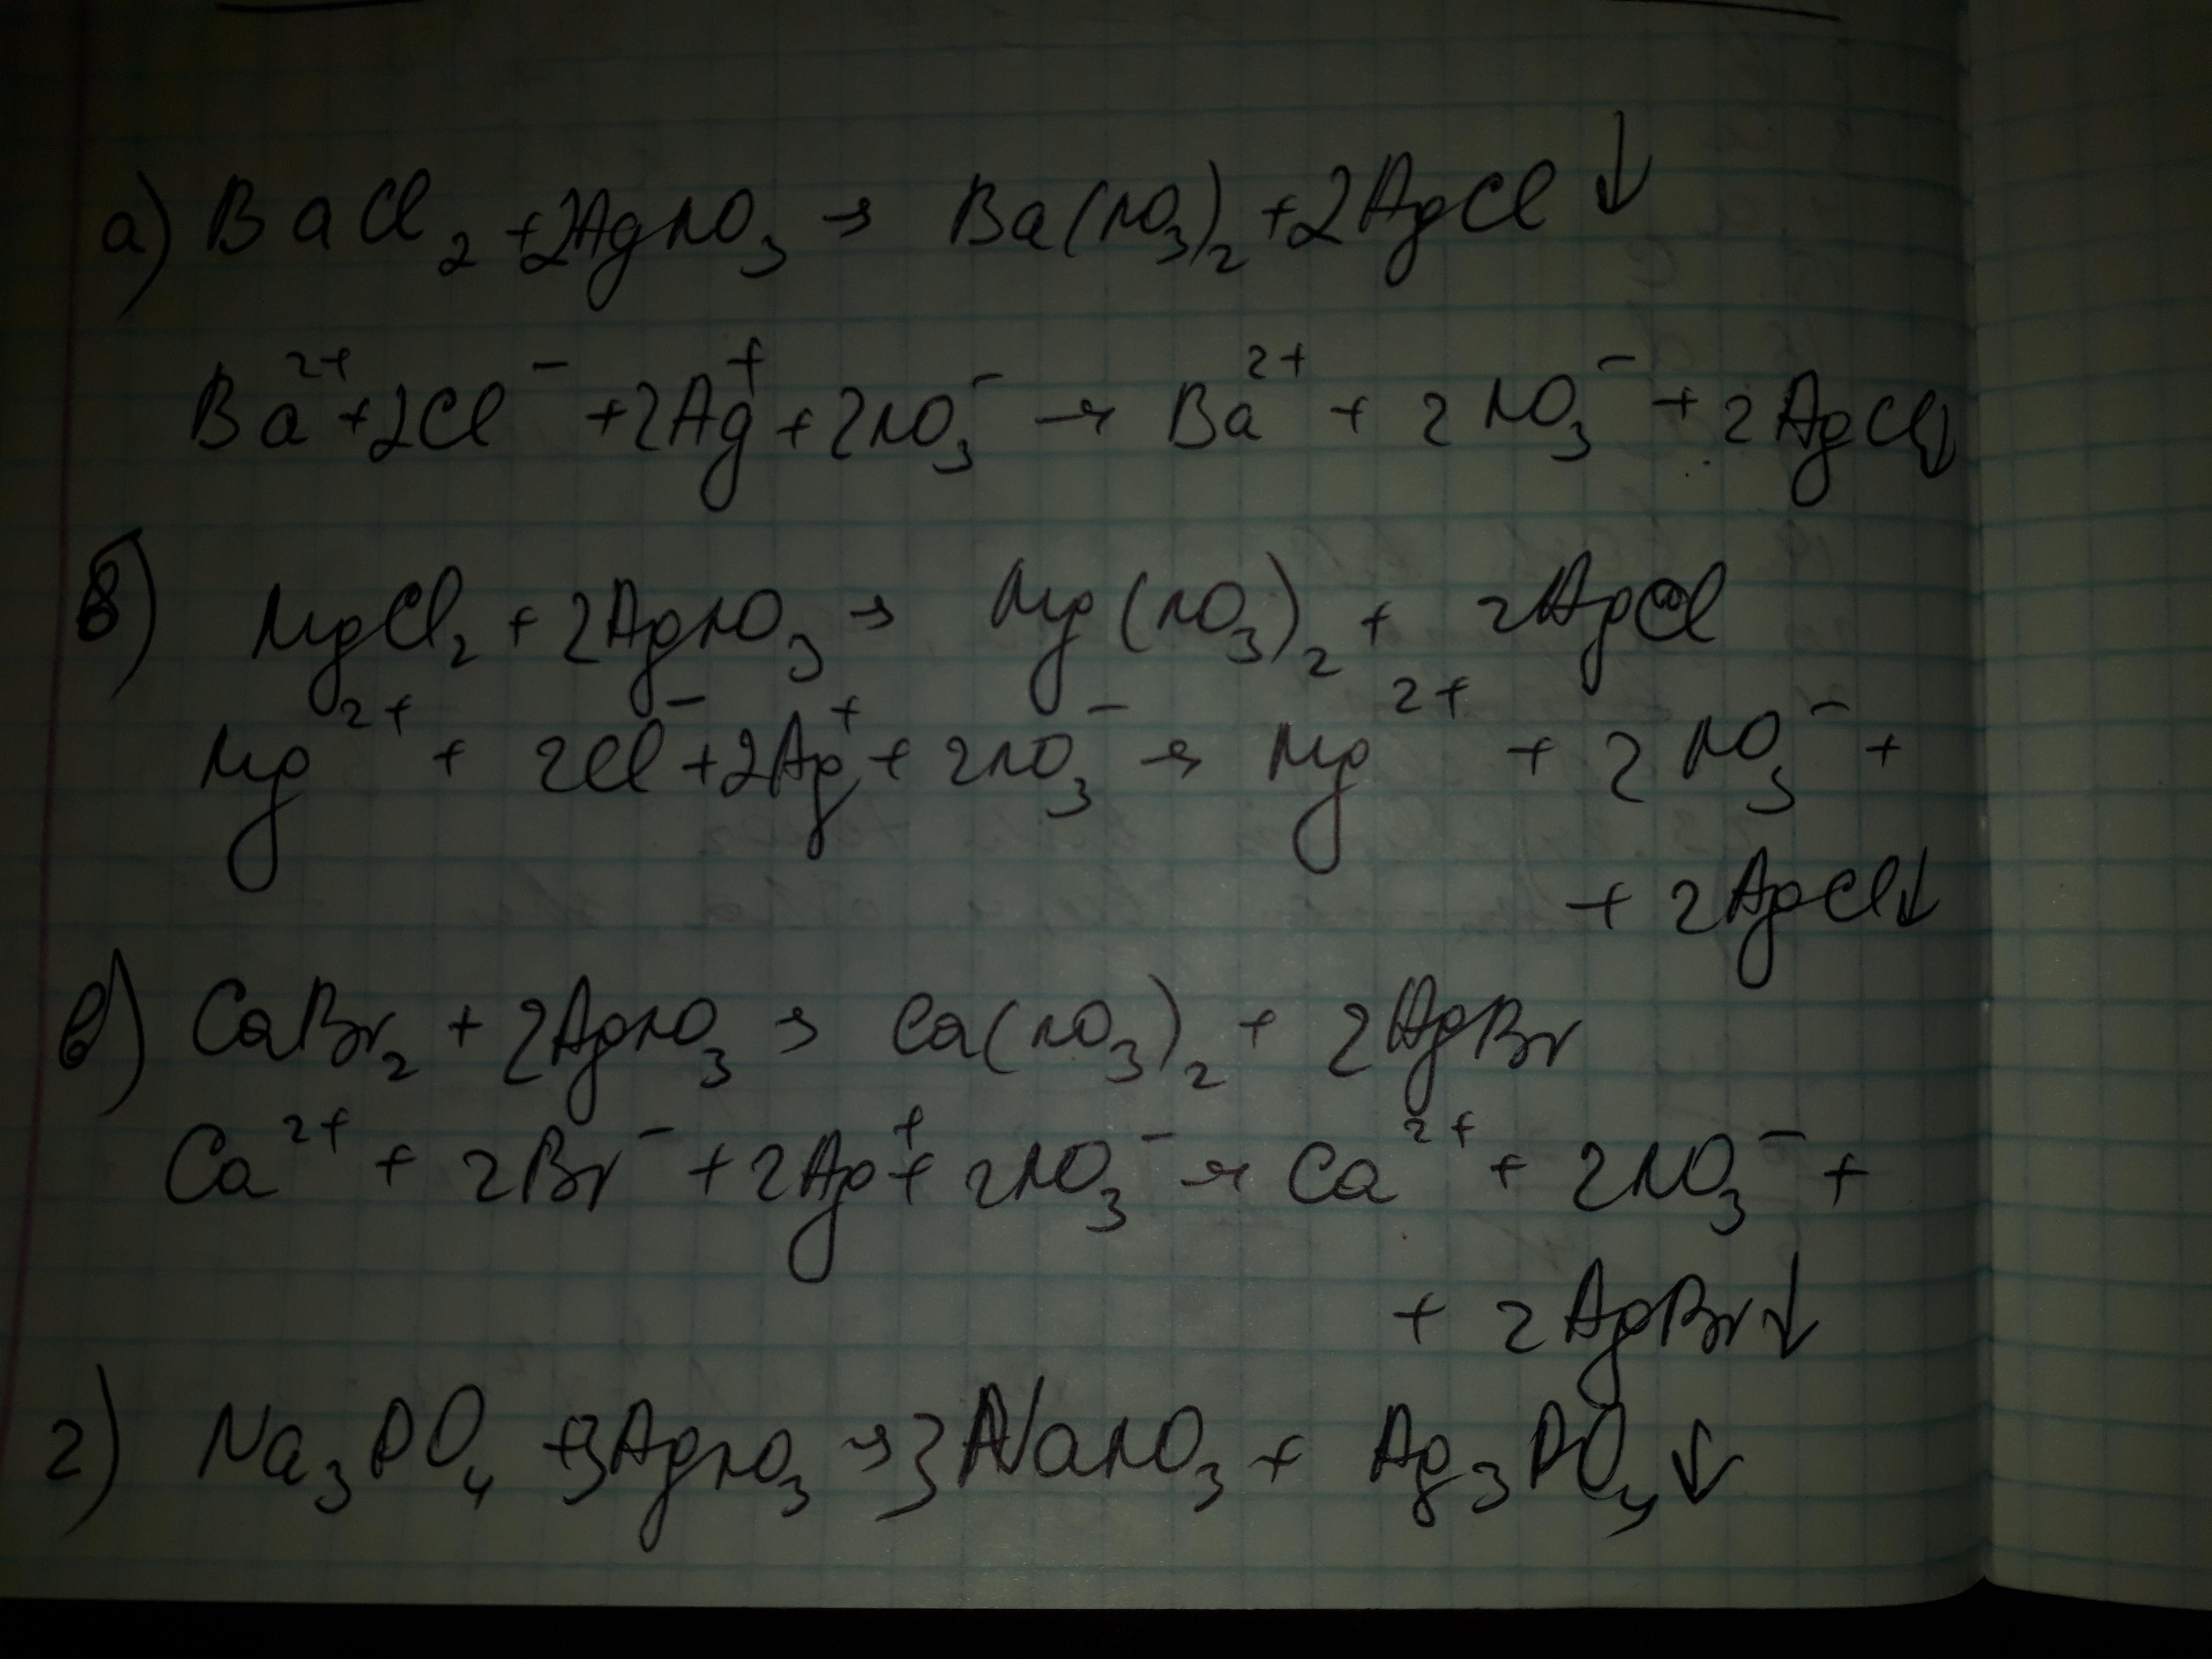 а) BaCl₂ + 2AgNO₃ → Ba(NO₃)₂ + 2AgCl↓
Ba²⁺ + 2Cl⁻ + 2Ag⁺ + 2NO₃⁻ → Ba²⁺ + 2NO₃⁻ + 2AgCl↓
б) MgCl₂ + 2AgNO₃ → Mg(NO₃)₂ + 2AgCl
Mg²⁺ + 2Cl⁻ + 2Ag⁺ + 2NO₃⁻ → Mg²⁺ + 2NO₃⁻ +
+ 2AgCl↓
в) CaBr₂ + 2AgNO₃ → Ca(NO₃)₂ + 2AgBr
Ca²⁺ + 2Br⁻ + 2Ag⁺ + 2NO₃⁻ → Ca²⁺ + 2NO₃⁻ +
+ 2AgBr↓
г) Na₃PO₄ + 3AgNO₃ → 3NaNO₃ + Ag₃PO₄↓